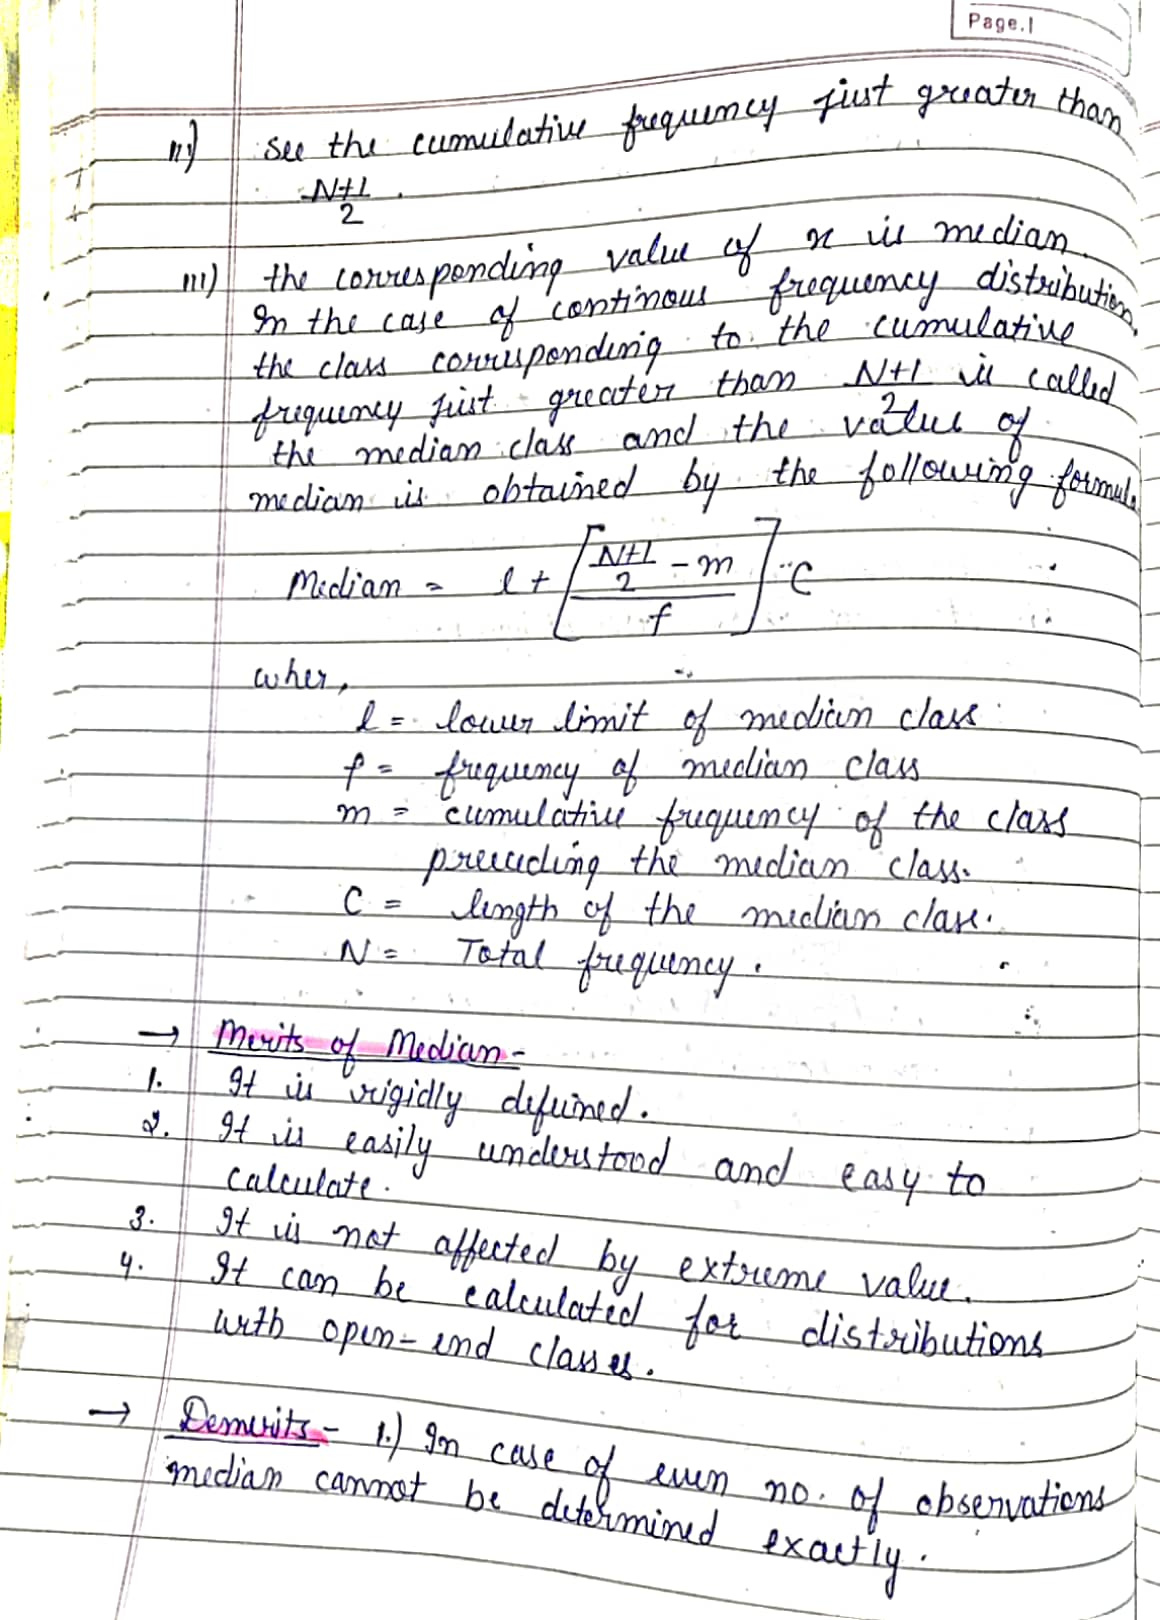 Page.1
ii) see the cumulative frequency just greater than
N+1
2 .
iii) the corresponding value of x is median.
In the case of continous frequency distribution,
the class corresponding to the cumulative
frequency just greater than N+1 is called
2
the median class and the value of
median is obtained by the following formula
Median = l + [ (N+1)/2 - m / f ] C
wher,
l = lower limit of median class
f = frequency of median class
m = cumulative frequency of the class
preceding the median class.
C = length of the median class.
N = Total frequency.
→ Merits of Median -
1. It is rigidly defined.
2. It is easily understood and easy to
calculate.
3. It is not affected by extreme value.
4. It can be calculated for distributions
with open-end classes.
→ Demerits - 1.) In case of even no. of observations
median cannot be determined exactly.